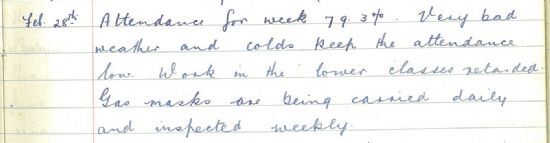 Feb. 28th. Attendance for week 79.3%. Very bad
weather and colds keep the attendance
low. Work in the lower classes retarded.
Gas masks are being carried daily
and inspected weekly.